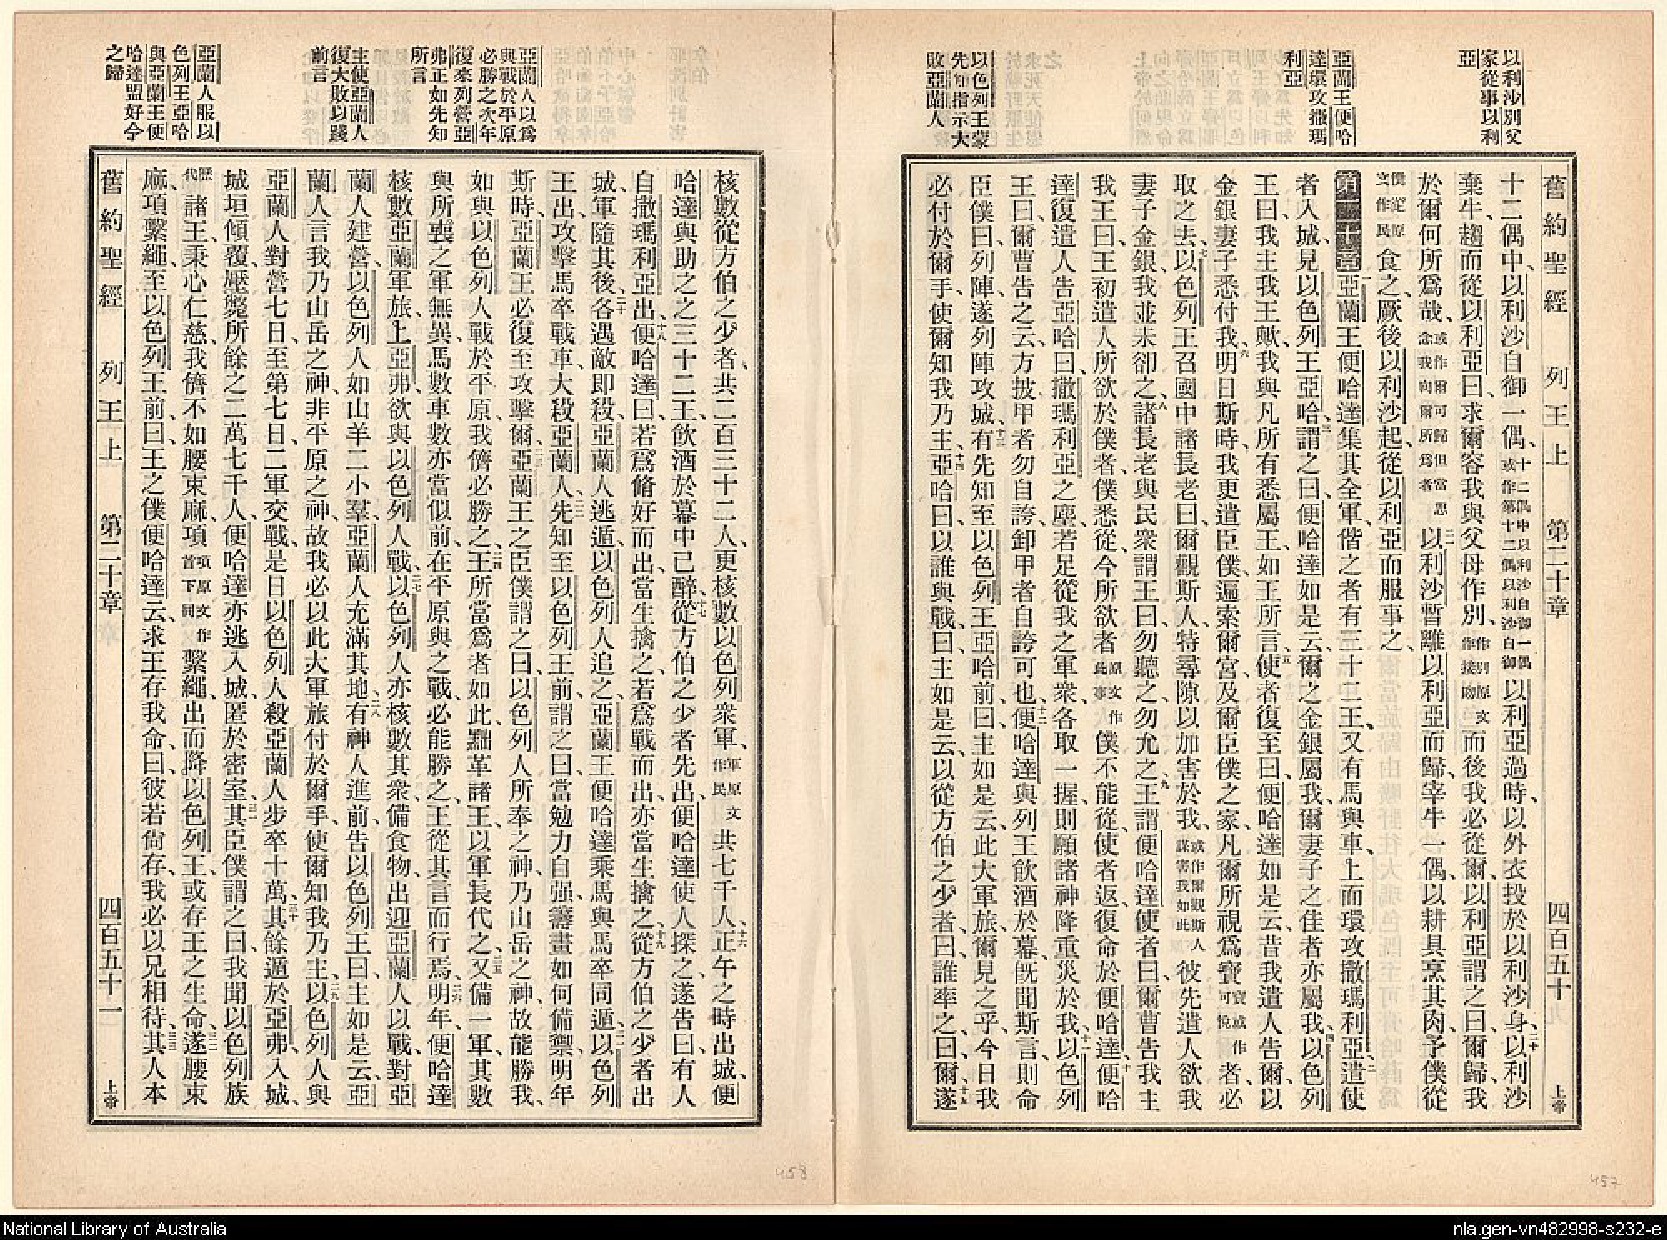 以利沙別父
家從事以利
亞
亞蘭王便哈
達環攻撒瑪
利亞
以色列王蒙
先知指示大
敗亞蘭人
舊約聖經 列王上 第二十章 四百五十 上帝
十二偶中、以利沙自御一偶、十二偶中以利沙自御一偶或作第十二偶以利沙自御以利亞過時、以外衣投於以利沙身、二十以利沙
棄牛、趨而從以利亞曰、求爾容我與父母作別、作別原文作接吻而後我必從爾、以利亞謂之曰、爾歸、我
於爾何所爲哉、或作爾可歸但當思念我向爾所爲者以利沙暫離以利亞而歸、宰牛一偶、以耕具烹其肉、予僕從
僕從原文作民食之、厥後以利沙起、從以利亞而服事之、
第二十章亞蘭王便哈達集其全軍、偕之者有三十二王、又有馬與車、上而環攻撒瑪利亞、二遣使
者入城、見以色列王亞哈、三謂之曰、便哈達如是云、爾之金銀屬我、爾妻子之佳者亦屬我、四以色列
王曰、我主我王歟、我與凡所有悉屬王、如王所言、五使者復至曰、便哈達如是云、昔我遣人告爾、以
金銀妻子悉付我、六明日斯時、我更遣臣僕、遍索爾宮、及爾臣僕之家、凡爾所視爲寶寶或作可悅者、必
取之去、七以色列王召國中諸長老曰、爾觀斯人、特尋隙以加害於我、或作爾觀斯人謀害我如此彼先遣人欲我
妻子金銀、我並未卻之、八諸長老與民衆謂王曰、勿聽之、勿允之、九王謂便哈達使者曰、爾曹告我主
我王曰、王初遣人所欲於僕者、僕悉從、今所欲者、原文作此事僕不能從、使者返、復命於便哈達、十便哈
達復遣人告亞哈曰、撒瑪利亞之塵、若足從我之軍衆各取一握、則願諸神降重災於我、十一以色列
王曰、爾曹告之云、方披甲者勿自誇、卸甲者自誇可也、十二便哈達與列王飲酒於幕、旣聞斯言、則命
臣僕曰、列陣、遂列陣攻城、十三有先知至以色列王亞哈前曰、主如是云、此大軍旅、爾見之乎、今日我
必付於爾手、使爾知我乃主、十四亞哈曰、以誰與戰、曰、主如是云、以從方伯之少者、曰、誰率之、曰、爾、十五遂
亞蘭人以爲
與戰於平原
必勝之次年
復來列營亞
弗正如先知
所言
主使亞蘭人
復大敗以踐
前言
亞蘭人服以
色列王亞哈
與亞蘭王便
哈達盟好令
之歸
核數從方伯之少者、共二百三十二人、更核數以色列衆軍、軍原文作民共七千人、十六正午之時出城、便
哈達與助之之三十二王、飲酒於幕中已醉、十七從方伯之少者先出、便哈達使人探之、遂告曰、有人
自撒瑪利亞出、十八便哈達曰、若爲脩好而出、當生擒之、若爲戰而出、亦當生擒之、十九從方伯之少者出
城、軍隨其後、二十各遇敵卽殺、亞蘭人逃遁、以色列人追之、亞蘭王便哈達乘馬、與馬卒同遁、二一以色列
王出、攻擊馬卒戰車、大殺亞蘭人、二二先知至以色列王前、謂之曰、當勉力自强、籌畫如何備禦、明年
斯時、亞蘭王必復至攻擊爾、二三亞蘭王之臣僕謂之曰、以色列人所奉之神、乃山岳之神、故能勝我、
如與以色列人戰於平原、我儕必勝之、二四王所當爲者如此、黜革諸王、以軍長代之、二五又備一軍、其數
與所喪之軍無異、馬數車數亦當似前、在平原與之戰、必能勝之、王從其言而行焉、二六明年、便哈達
核數亞蘭軍旅、上亞弗、欲與以色列人戰、二七以色列人亦核數其衆、備食物、出迎亞蘭人以戰、對亞
蘭人建營、以色列人如山羊二小羣、亞蘭人充滿其地、二八有神人進前、告以色列王曰、主如是云、亞
蘭人言我乃山岳之神、非平原之神、故我必以此大軍旅付於爾手、使爾知我乃主、二九以色列人與
亞蘭人對營七日、至第七日、二軍交戰、是日以色列人殺亞蘭人步卒十萬、三十其餘遁於亞弗入城、
城垣傾覆、壓斃所餘之二萬七千人、便哈達亦逃入城、匿於密室、三一其臣僕謂之曰、我聞以色列族
歷代諸王、秉心仁慈、我儕不如腰束麻、項項原文作首下同繫繩、出而降以色列王、或存王之生命、三二遂腰束
麻、項繫繩、至以色列王前曰、王之僕便哈達云、求王存我命、曰、彼若尙存、我必以兄相待、三三其人本
舊約聖經 列王上 第二十章 四百五十一 上帝
458
457
National Library of Australia
nla.gen-vn482998-s232-e